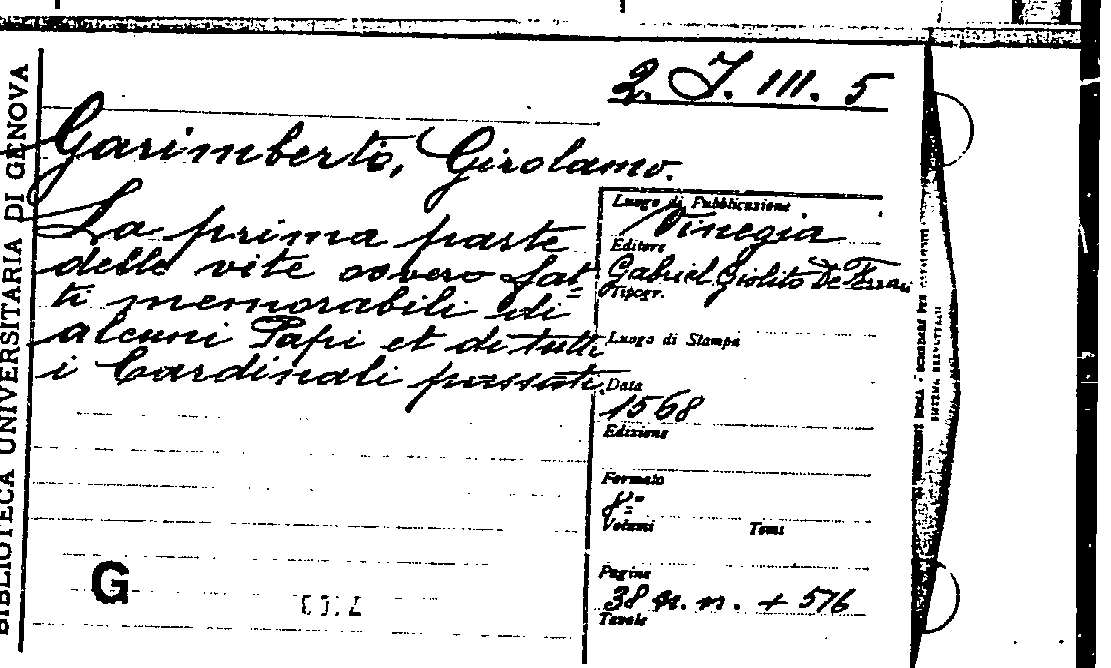 BIBLIOTECA UNIVERSITARIA DI GENOVA
2. J. III. 5
Garimberto, Girolamo.
La prima parte
delle vite ovvero fat=
ti memorabili di
alcuni Papi et di tutti
i Cardinali passati.
Luogo di Pubblicazione
Vinegia
Editore
Gabriel Giolito De Ferrari
Tipogr.
Luogo di Stampa
Data
1568
Edizione
Formato
8º
Volumi Tomi
Pagine
38 n. n. + 576
Tavole
G